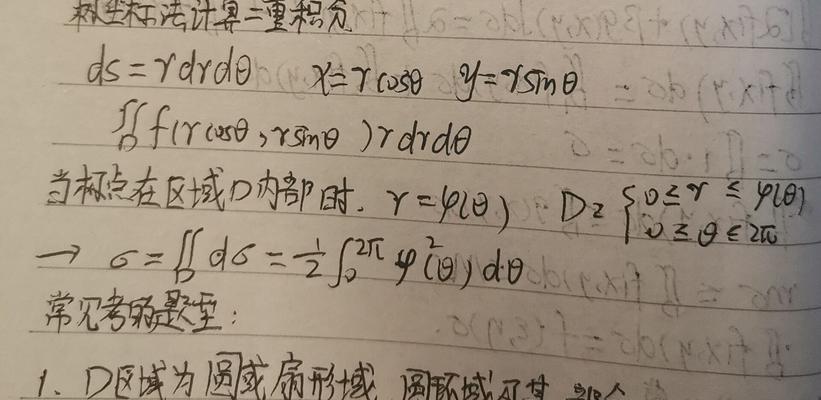 极坐标法计算二重积分
ds = r dr dθ  x = r cosθ  y = r sinθ
∬_D f(r cosθ, r sinθ) r dr dθ
当极点在区域D内部时. r = φ(θ)  D: { 0 ≤ r ≤ φ(θ)
0 ≤ θ ≤ 2π
→ σ = ∬_D dσ = 1/2 ∫_0^{2π} φ²(θ) dθ
常见考的题型:
1. D区域为圆或扇形域 圆环域